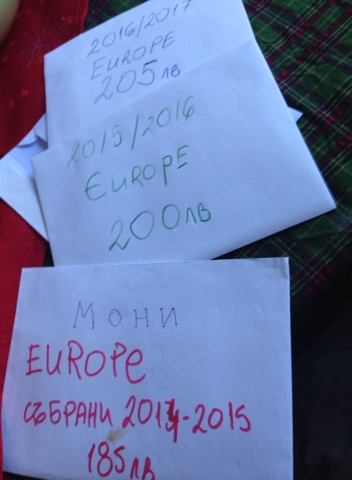 2016/2017
EUROPE
205лв
2015/2016
EUROPE
200лв
Мони
EUROPe
СЪБРАНИ 2014-2015
185лв